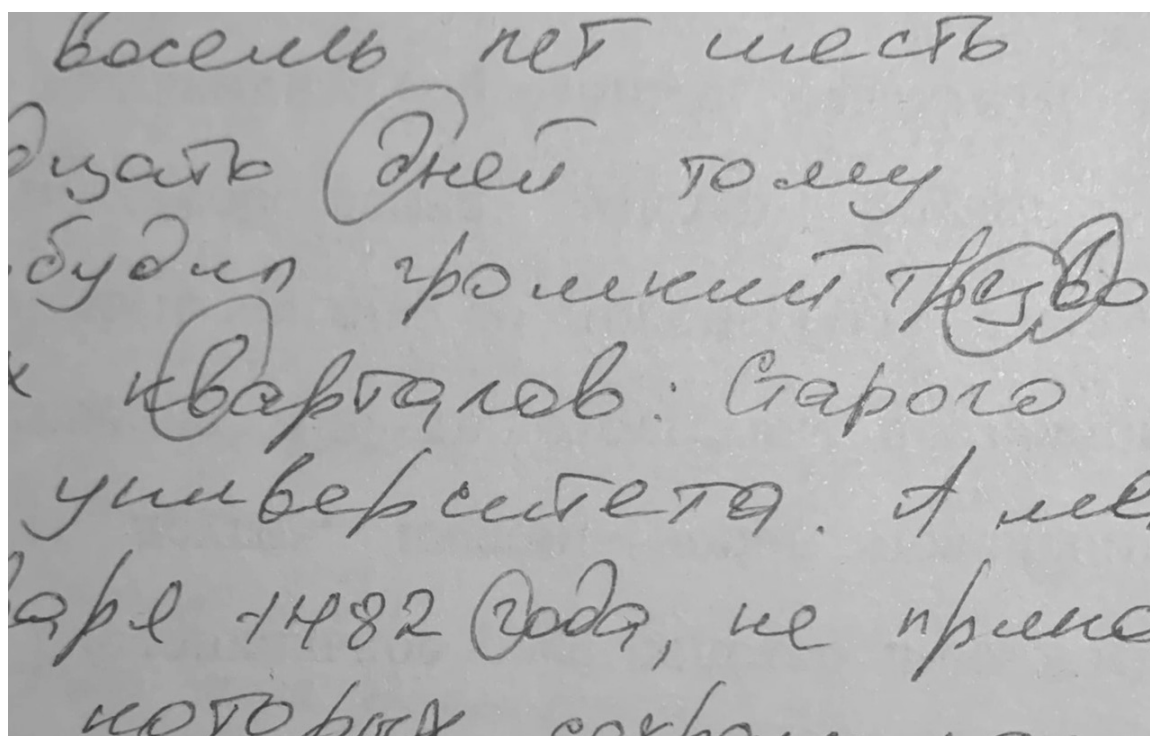 восемь лет шесть
дцать дней тому
будил громкий трезво
х кварталов: Старого
университета. А ме
варе 1482 года, не прина
которых сохран